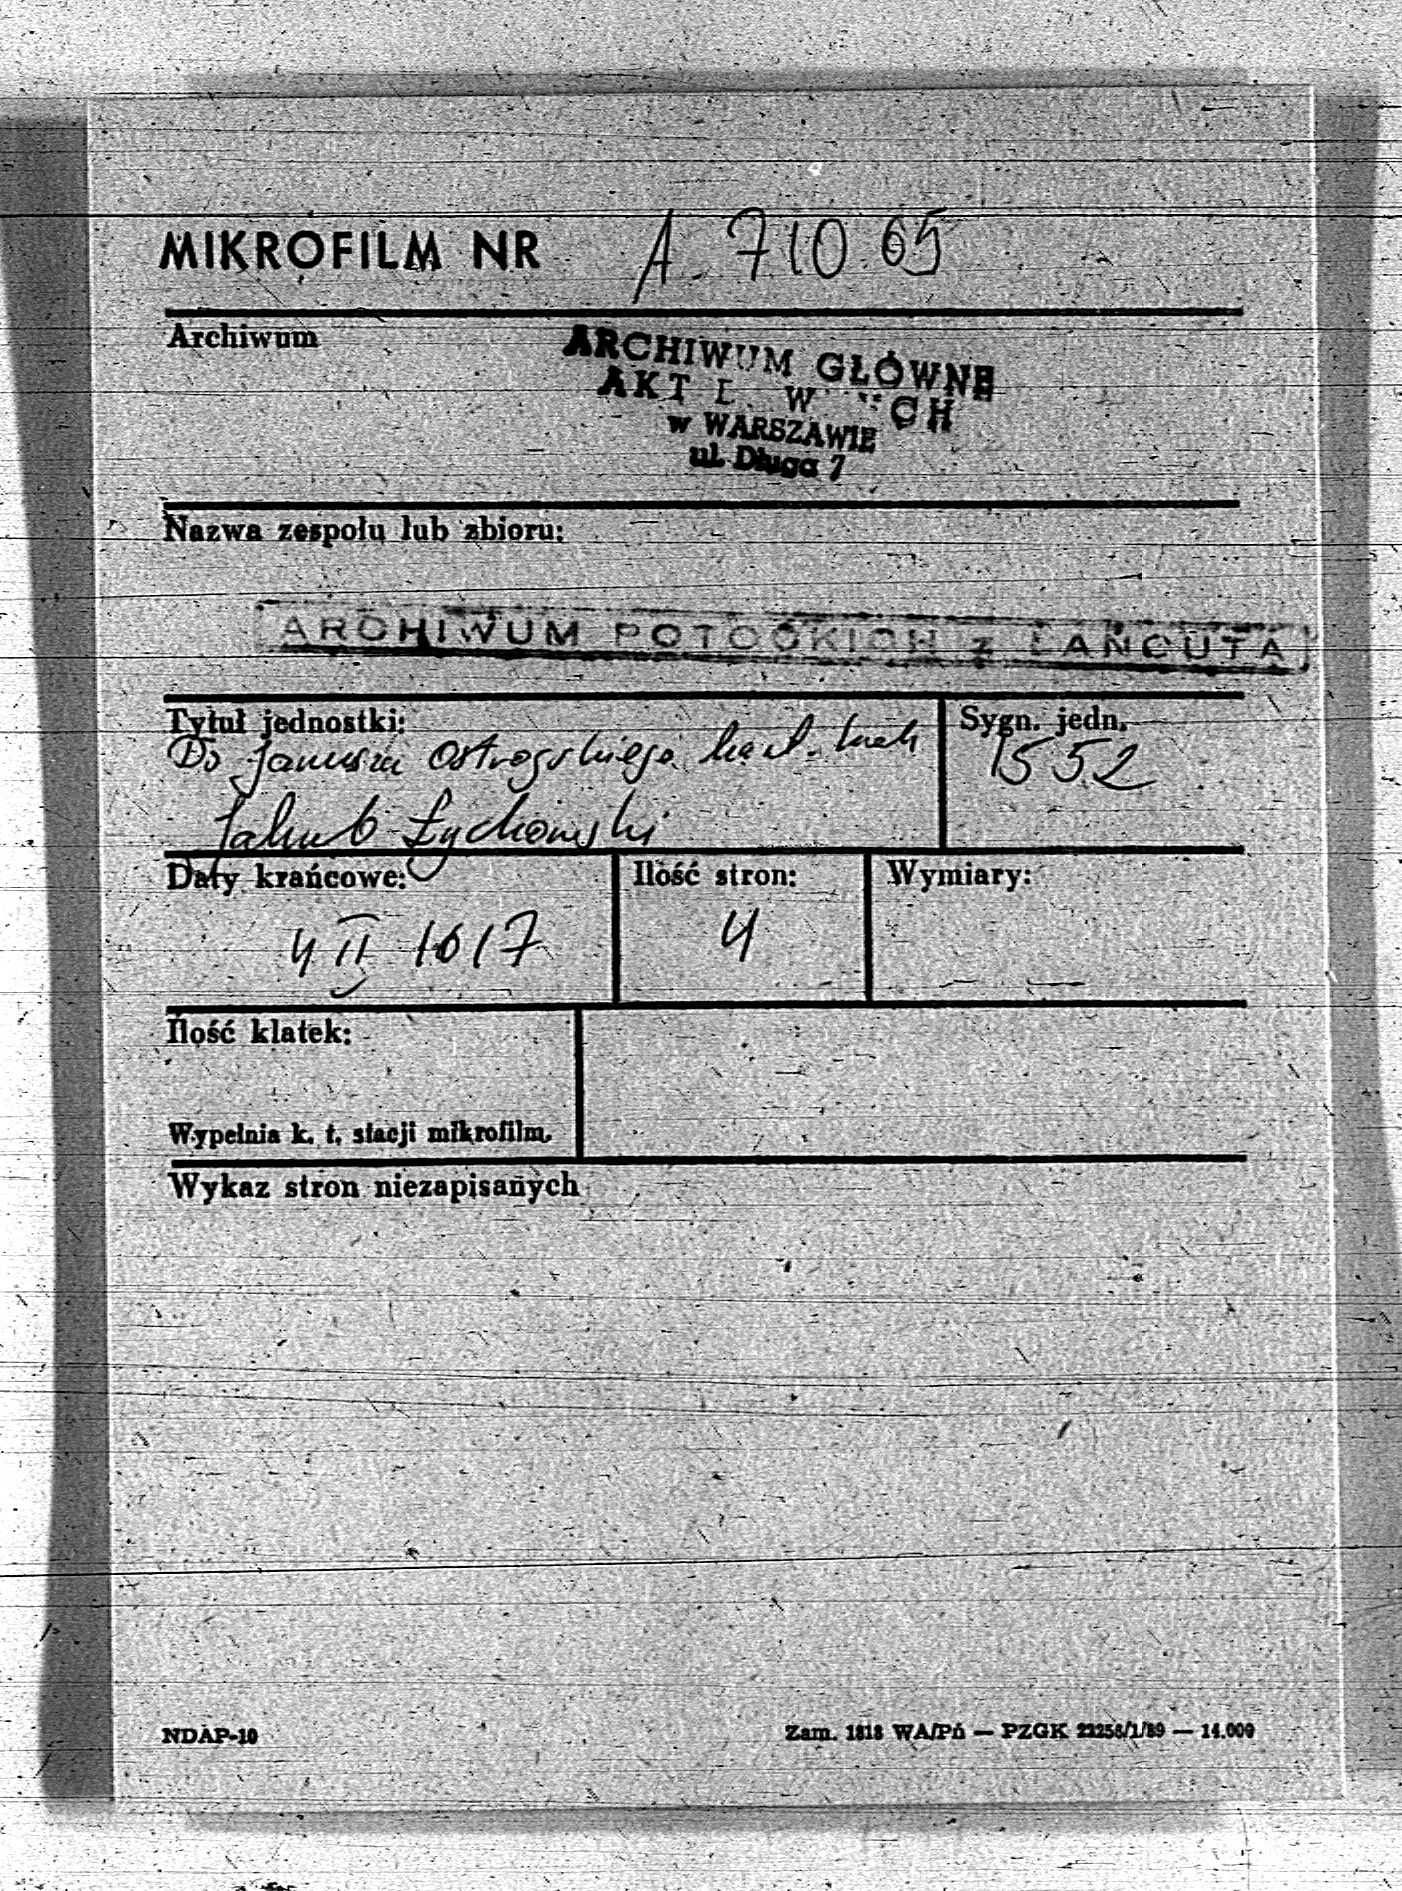 MIKROFILM NR A. 710 65
Archiwum
ARCHIWUM GŁÓWNE
AKT
w WARSZAWIE
ul. Długa 7
Nazwa zespołu lub zbioru:
ARCHIWUM POTOCKICH z ŁAŃCUTA
Tytuł jednostki:
Sygn. jedn.
Do Janusza Ostrogskiego kaszt. krak
1552
Jakub Łychowski
Daty krańcowe:
Ilość stron:
Wymiary:
4 II 1617
4
Ilość klatek:
Wypełnia k. t. stacji mikrofilm.
Wykaz stron niezapisanych
NDAP-10
Zam. 1818 WA/Pó — PZGK 22256/1/89 — 14.000